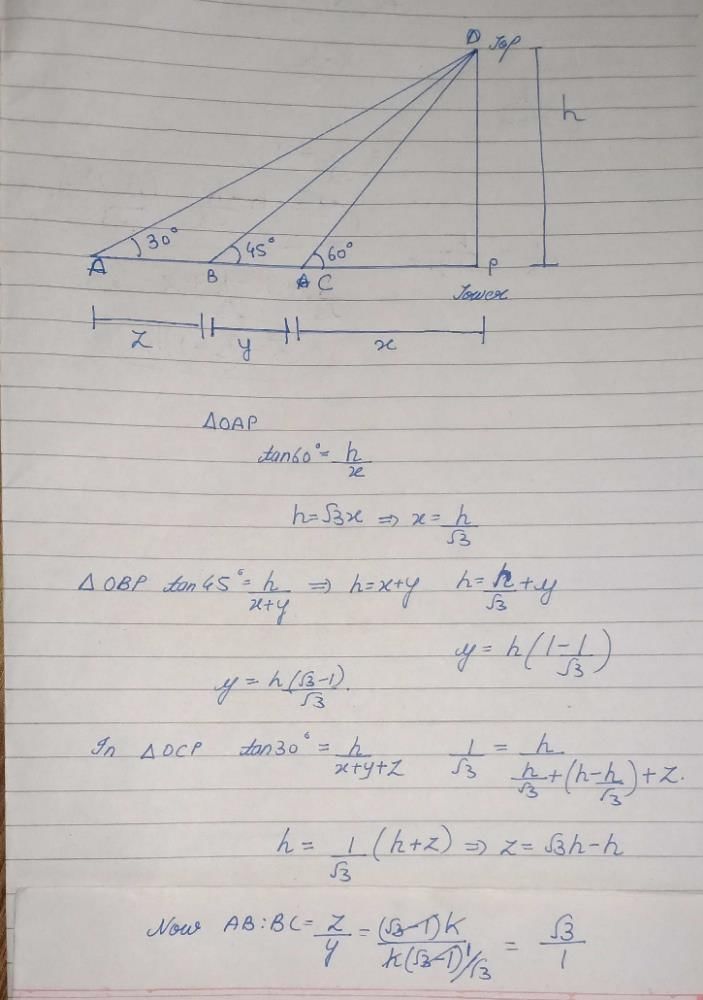 O Top
h
30°
45°
60°
A
B
C
P
Tower
z
y
x
ΔOAP
tan60° = h/x
h=√3x ⇒ x = h/√3
ΔOBP tan45° = h/(x+y) ⇒ h=x+y h= h/√3 + y
y = h(1-1/√3)
y = h(√3-1)/√3.
In ΔOCP tan30° = h/(x+y+z) 1/√3 = h/(h/√3+(h-h/√3)+z).
h = 1/√3 (h+z) ⇒ z = √3h-h
Now AB:BC = z/y = (√3-1)h/(h(√3-1)1/√3) = √3/1